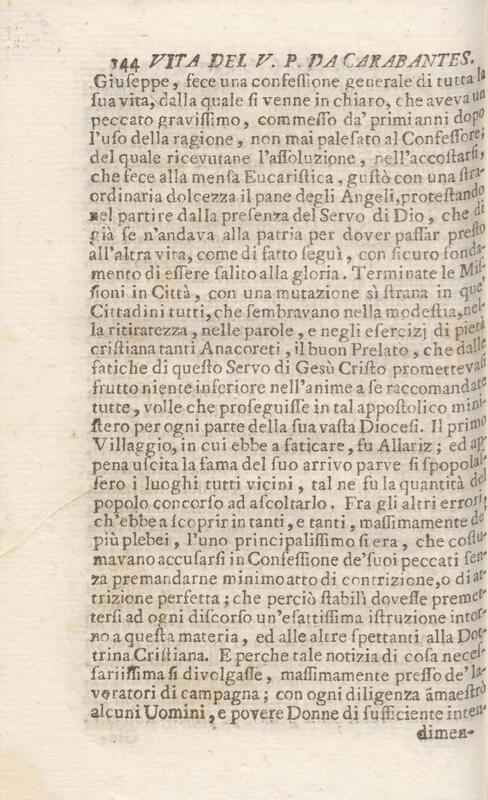 144 VITA DEL V. P. DA CARABANTES.
Giuſeppe, fece una confeſſione generale di tutta la
ſua vita, dalla quale ſi venne in chiaro, che aveva un
peccato graviſſimo, commeſſo da' primi anni dopo
l'uſo della ragione, non mai paleſato al Confeſſore;
del quale ricevutane l'aſſoluzione, nell'accoſtarſi,
che fece alla menſa Eucariſtica, guſtò con una ſtra-
ordinaria dolcezza il pane degli Angeli, proteſtando
nel partire dalla preſenza del Servo di Dio, che di
già ſe n'andava alla patria per dover paſſar preſto
all'altra vita, come di fatto ſeguì, con ſicuro fonda-
mento di eſſere ſalito alla gloria. Terminate le Miſ-
ſioni in Città, con una mutazione sì ſtrana in que'
Cittadini tutti, che ſembravano nella modeſtia, nel-
la ritiratezza, nelle parole, e negli eſercizj di pietà
criſtiana tanti Anacoreti, il buon Prelato, che dalle
fatiche di queſto Servo di Gesù Criſto promettevaſi
frutto niente inferiore nell'anime a ſe raccomandate
tutte, volle che proſeguiſſe in tal appoſtolico mini-
ſtero per ogni parte della ſua vaſta Dioceſi. Il primo
Villaggio, in cui ebbe a faticare, fu Allariz; ed ap-
pena uſcita la fama del ſuo arrivo parve ſi ſpopolaſ-
ſero i luoghi tutti vicini, tal ne fu la quantità del
popolo concorſo ad aſcoltarlo. Fra gli altri errori,
ch'ebbe a ſcoprir in tanti, e tanti, maſſimamente de'
più plebei, l'uno principaliſſimo ſi era, che coſtu-
mavano accuſarſi in Confeſſione de'ſuoi peccati ſen-
za premandarne minimo atto di contrizione, o di at-
trizione perfetta; che perciò ſtabilì doveſſe premet-
terſi ad ogni diſcorſo un'eſattiſſima iſtruzione intor-
no a queſta materia, ed alle altre ſpettanti alla Dot-
trina Criſtiana. E perche tale notizia di coſa neceſ-
ſariiſſima ſi divolgaſſe, maſſimamente preſſo de' la-
voratori di campagna; con ogni diligenza ãmaeſtrò
alcuni Uomini, e povere Donne di ſufficiente inten-
dimen-